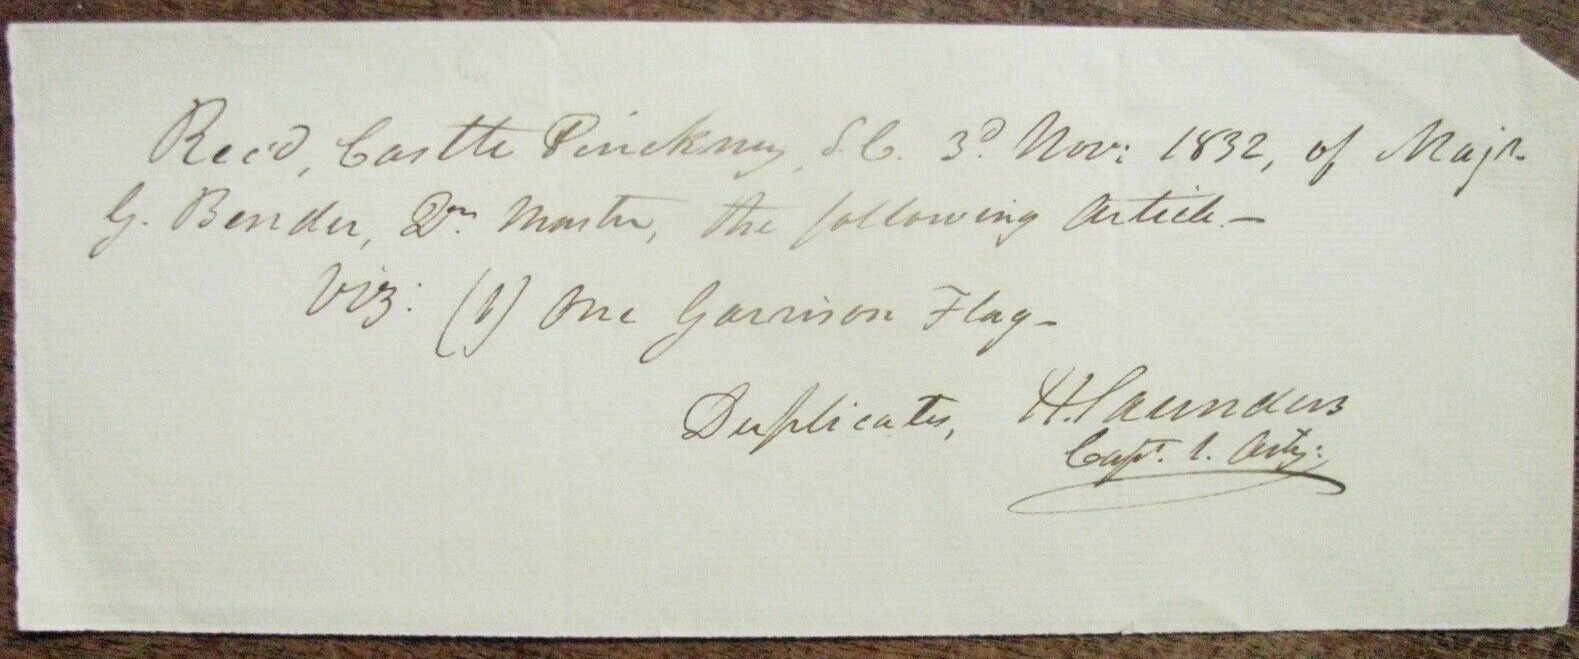 Rec'd, Castle Pinckney, S.C. 3d. Nov: 1832, of Majr.
G. Bender, Qr. Master, the following Article.—
Viz: (1) One Garrison Flag-
Duplicates, H. Saunders
Capt. 1. Arty: